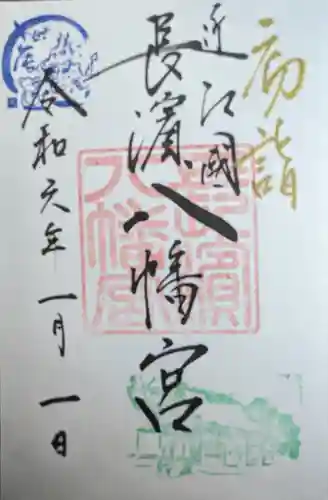 初詣
近江國
長濱八幡宮
令和六年 一月 一日
長濱八幡宮